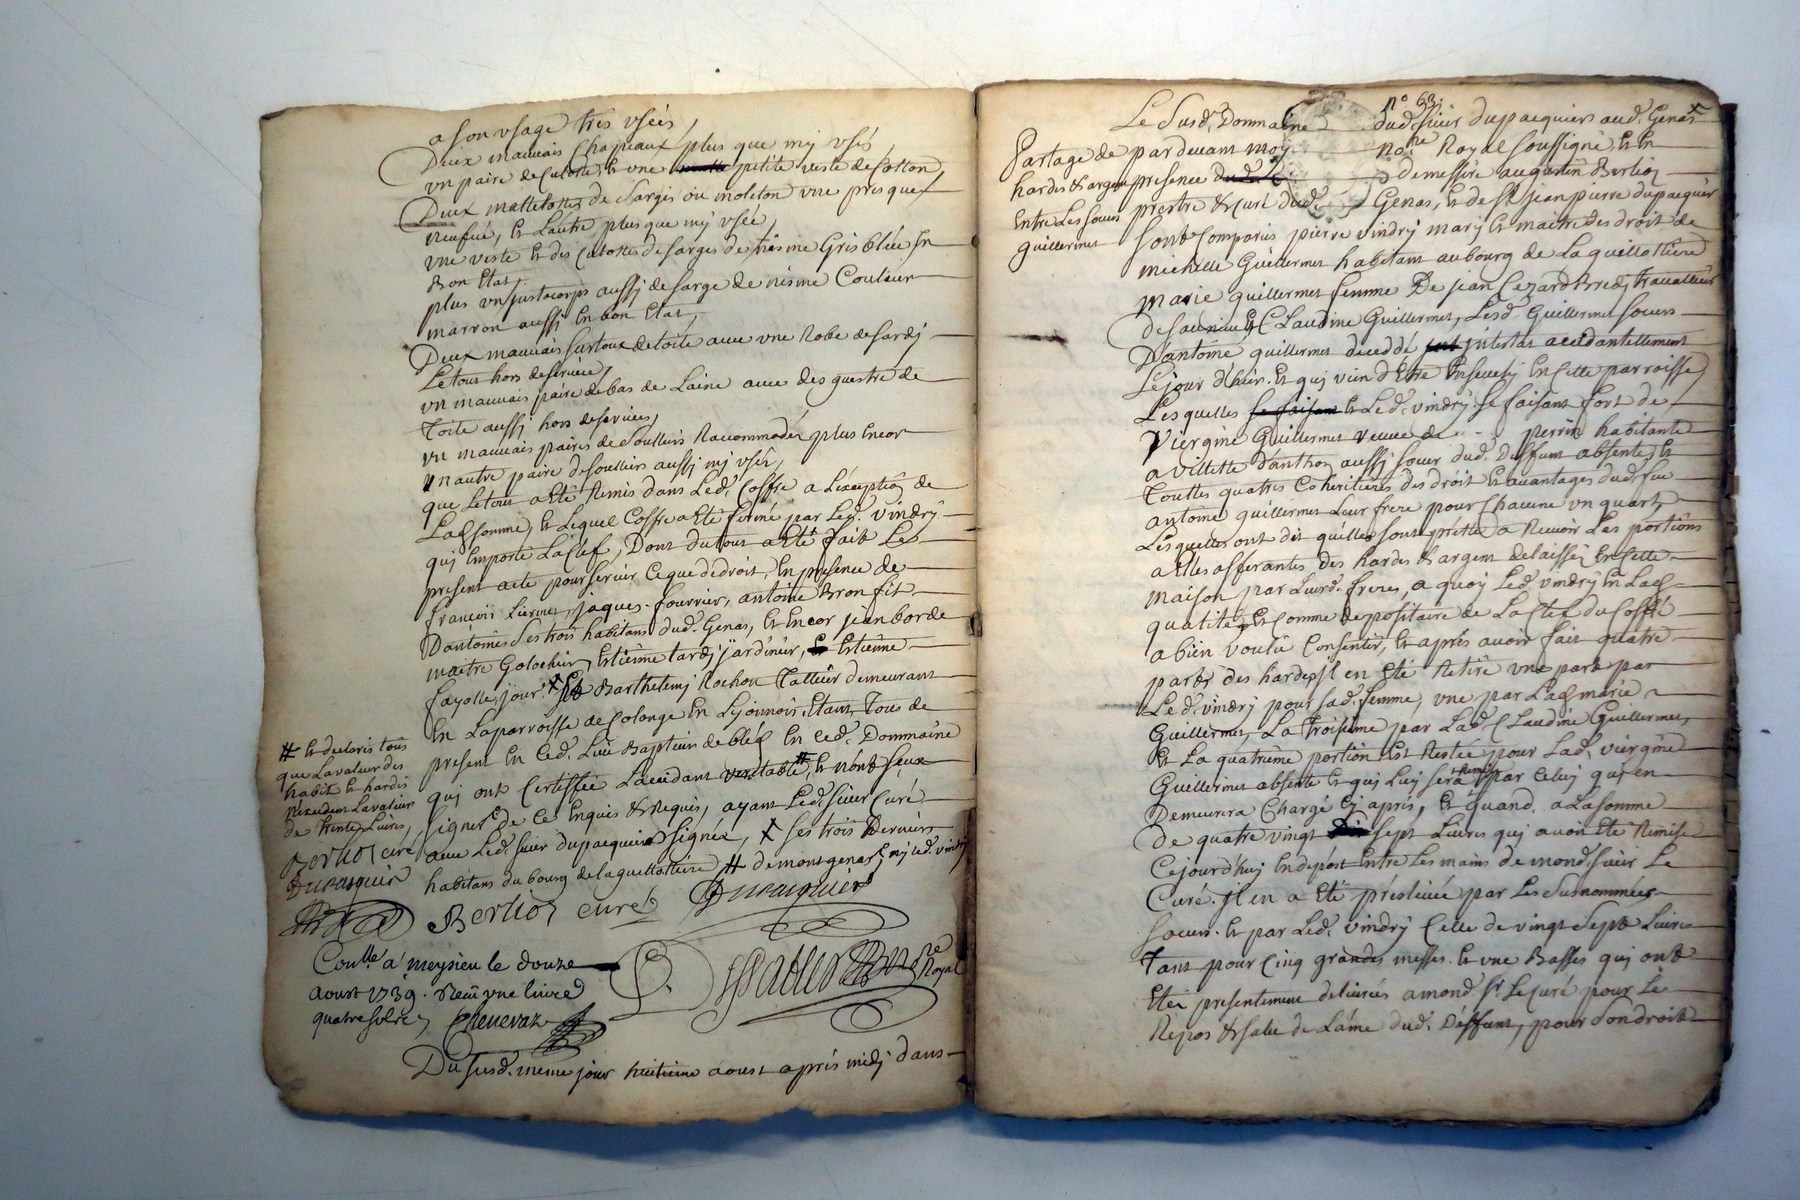 a son usage tres usées,
Deux mauvais chapeaux plus que my usés
un paire de culotte, et une petite veste de cotton
Deux mattelottes de sarges ou moleton une presque
neufue, et Lautre plus que my usée,
une veste et des culottes de sarges de mesme Gris bleüe en
Bon Etat,
plus un justocorps aussy de sarge de mesme Couleur
marron aussy en bon Etat,
Deux mauvais surtoux de toile avec une Robe de
Le tout hors de service,
un mauvais paire de bas de Laine avec des guestre de
toile aussy hors de services,
un mauvais paires de soulliers Raccommodés plus encor
un autre paire de soulliers aussy my usés,
que le tout a Eté Remis dans Led. Coffre a L'exception de
Lad. somme, et Lequel Coffre a Eté fermé par Led. vindry
qui Emporte La Clef, Dont du tout a Eté fait Le
present acte pour servir ce que de droit, en presence de
françois jaques fourrier, antoine Bron fit
D'antoine, ses trois habitans dud. Genas, et encor jean borde
maitre Estienne tardy jardinier, Estienne
fayolle, jour. X et Barthelemy Rochon Tallieur demeurant
en La parroisse de Colonge en Lyonnois, Etant Tous de
present en Led. Lieu en Led. Dommaine
qui ont Certiffié Laccidant veritable #, et n'ont sceu
signer de ce Enquis et Requis, ayant Led. sieur Curé
avec Led. sieur dupacquier signés, X ses trois Derniers
habitans du bourg de la guillottiere # de mont genas ny led. vindry
# et declaré tous
que La valleur des
habit et hardes
La valeur
de trente Livres,
Berlioz curé
Dupasquier
Berlioz curé Dupasquier
Conlle a meysieu le douze
aoust 1739. Receu une livre
quatre sols
Chenevaz
Royal
Du susd. meme jour huitieme aoust apres midy dans
n° 63.
Le Susd. Dommaine dud. sieur dupacquier aud. Genas X
Partage de
hardes et argent
Entre Les soeurs
guillermet
par devant moy no.re Royal soussigné, et en
presence de messire augustin Berlioz
prestre et curé dud. Genas, et de Sr jean pierre dupacquier
sont Comparus pierre vindry mary et maitre des droit de
michelle Guillermet habitant au bourg de La guillottiere
marie guillermet femme De jean Cezard Bred, travailleur
et Claudine Guillermet, Lesd. Guillermet soeurs
D'antoine guillermet decedé intestat accidantellement
Le jour d'hier. et qui vien d'Etre Enseveli en cette parroisse,
Lesquelles et Led. vindry se faisant fort de
Viergine Guillermet veuve de - - - perrin habitante
a villette d'anthon aussy soeur dud. deffunt absente, et
Touttes quatres Coheritieres des droit et avantages dud. feu
antoine guillermet Leur frere pour Chacune un quart,
Lesquelles ont dit qu'elles sont prette a Recevoir Les portions
a Elles afferantes des hardes et argent delaissés en cette
maison par Leurd. freres, a quoy Led. vindry en Lad.
qualité, et comme depositaire de La Clef du Coffre
a bien voulu Consentir, et aprés avoir fait quatre
parts des hardes il en Eté Retiré une part par
Led. vindry pour sad. femme, une par Lad. marie
Guillermet, La Troisieme par Lad. Claudine Guillermet,
Et La quatrieme portion Est Restée pour Lad. viergine
Guillermet absente et qui Luy sera remise par celuy qui en
Demeurera Chargé Cy aprés, et quand. a La somme
de quatre vingt sept Livres qui avoit Eté Remise
Cejourd'huy En depost Entre Les mains de mond. sieur Le
Curé. il en a Eté prélevée par Les Surnommées
soeurs. et par Led. vindry Celle de vingt sept Livres
tant pour Cinq grandes messes. et une Basses qui ont
Eté presentement delivrés a mond. Sr Le Curé pour Le
Repos et salu de Lame dud. Deffunt, pour son droit